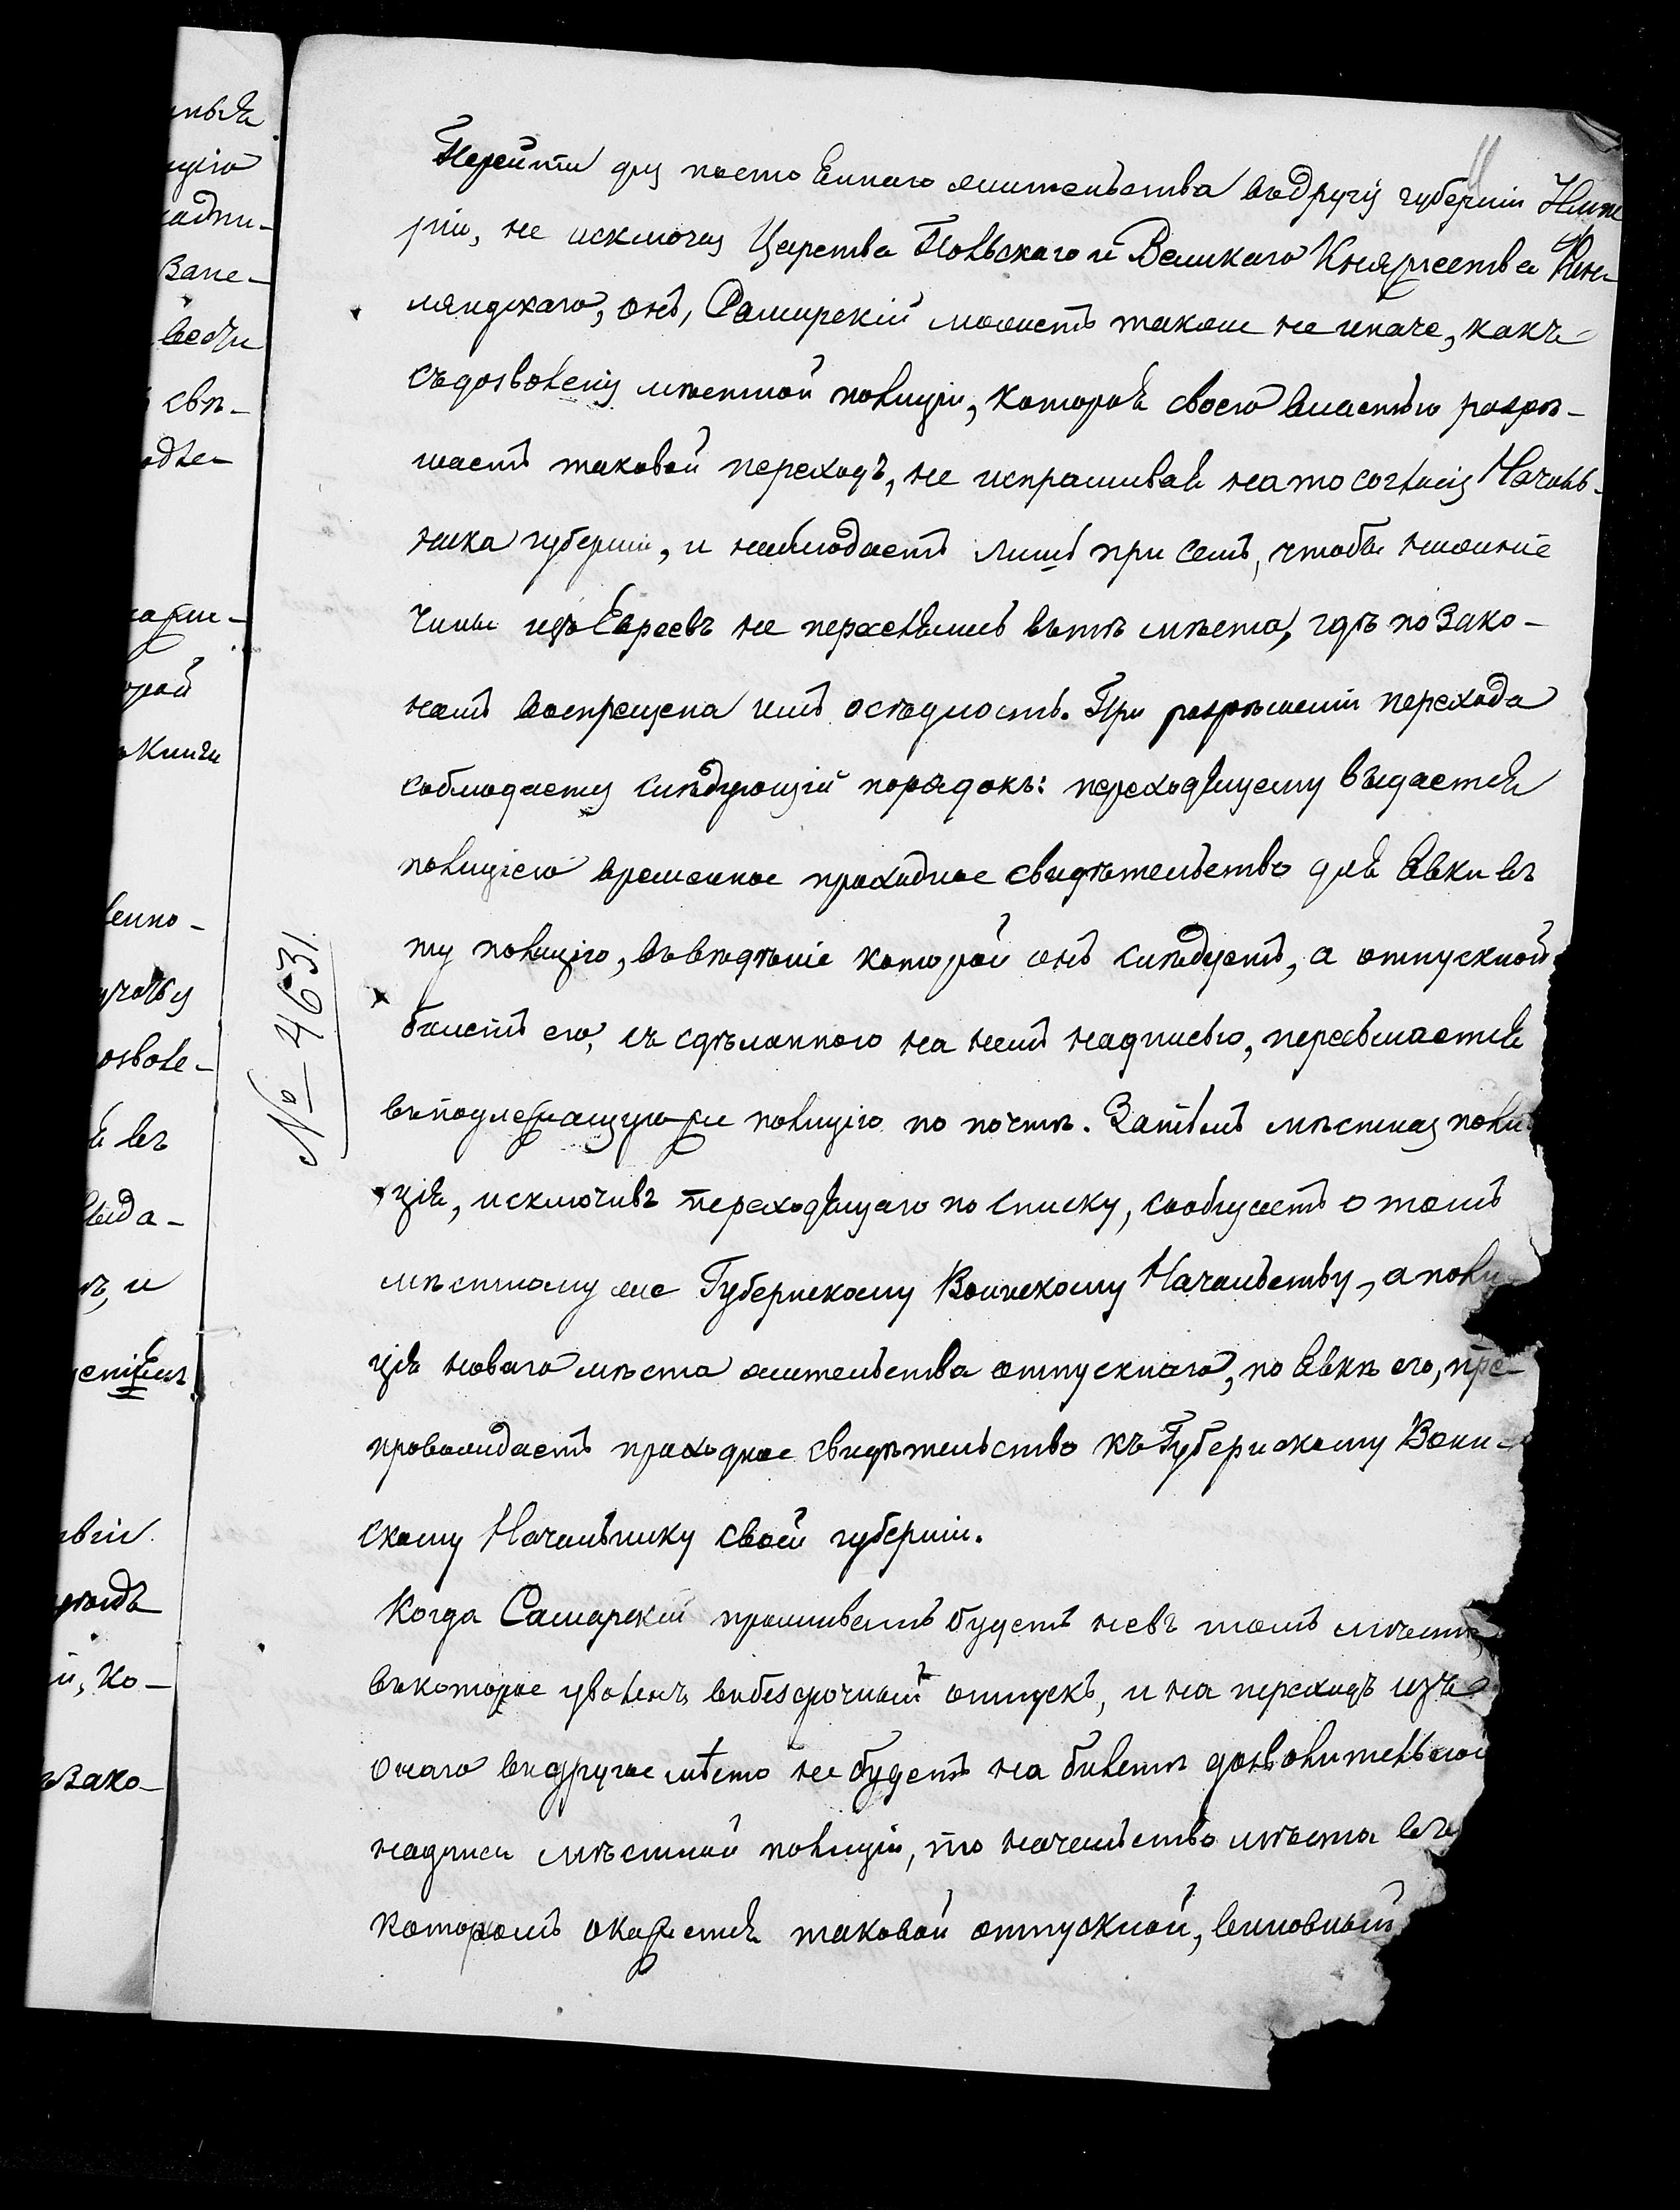 11
Перейти для постояннаго жительства въ другія губерніи Импе
ріи, не исключая Царства Польскаго и Великаго Княжества Фин-
ляндскаго, онъ, Самарскій можетъ также не иначе, какъ
съ дозволенія мѣстной полиціи, которая своею властью разрѣ-
шаетъ таковой переходъ, не испрашивая на то согласія Началь-
ника губерніи, и наблюдаетъ лишь при семъ, чтобы нижніе
чины изъ Евреевъ не переселялись въ тѣ мѣста, гдѣ по Зако-
намъ воспрещена имъ осѣдлость. При разрѣшеніи перехода
соблюдается слѣдующій порядокъ: переходящему выдается
полиціею временное проходное свидѣтельство для явки въ
ту полицію, въ вѣдѣніе которой онъ слѣдуетъ, а отпускной
билетъ его, съ сдѣланною на немъ надписью, пересылается
въ подлежащую же полицію по почтѣ. Затѣмъ мѣстная поли
ція, исключивъ переходящаго по списку, сообщаетъ о томъ
мѣстному же Губернскому Воинскому Начальству, а поли
ція новаго мѣста жительства отпускнаго, по явкѣ его, пре-
провождаетъ проходное свидѣтельство къ Губернскому Воин-
скому Начальнику своей губерніи.
Когда Самарскій проживать будетъ не въ томъ мѣстѣ
въ которое уволенъ въ безсрочный отпускъ, и на переходъ изъ
онаго въ другое мѣсто не будетъ на билетѣ дозволительной
надписи мѣстной полиціи, то начальство мѣста въ
которомъ окажется таковой отпускной, виновный
№ 4631.